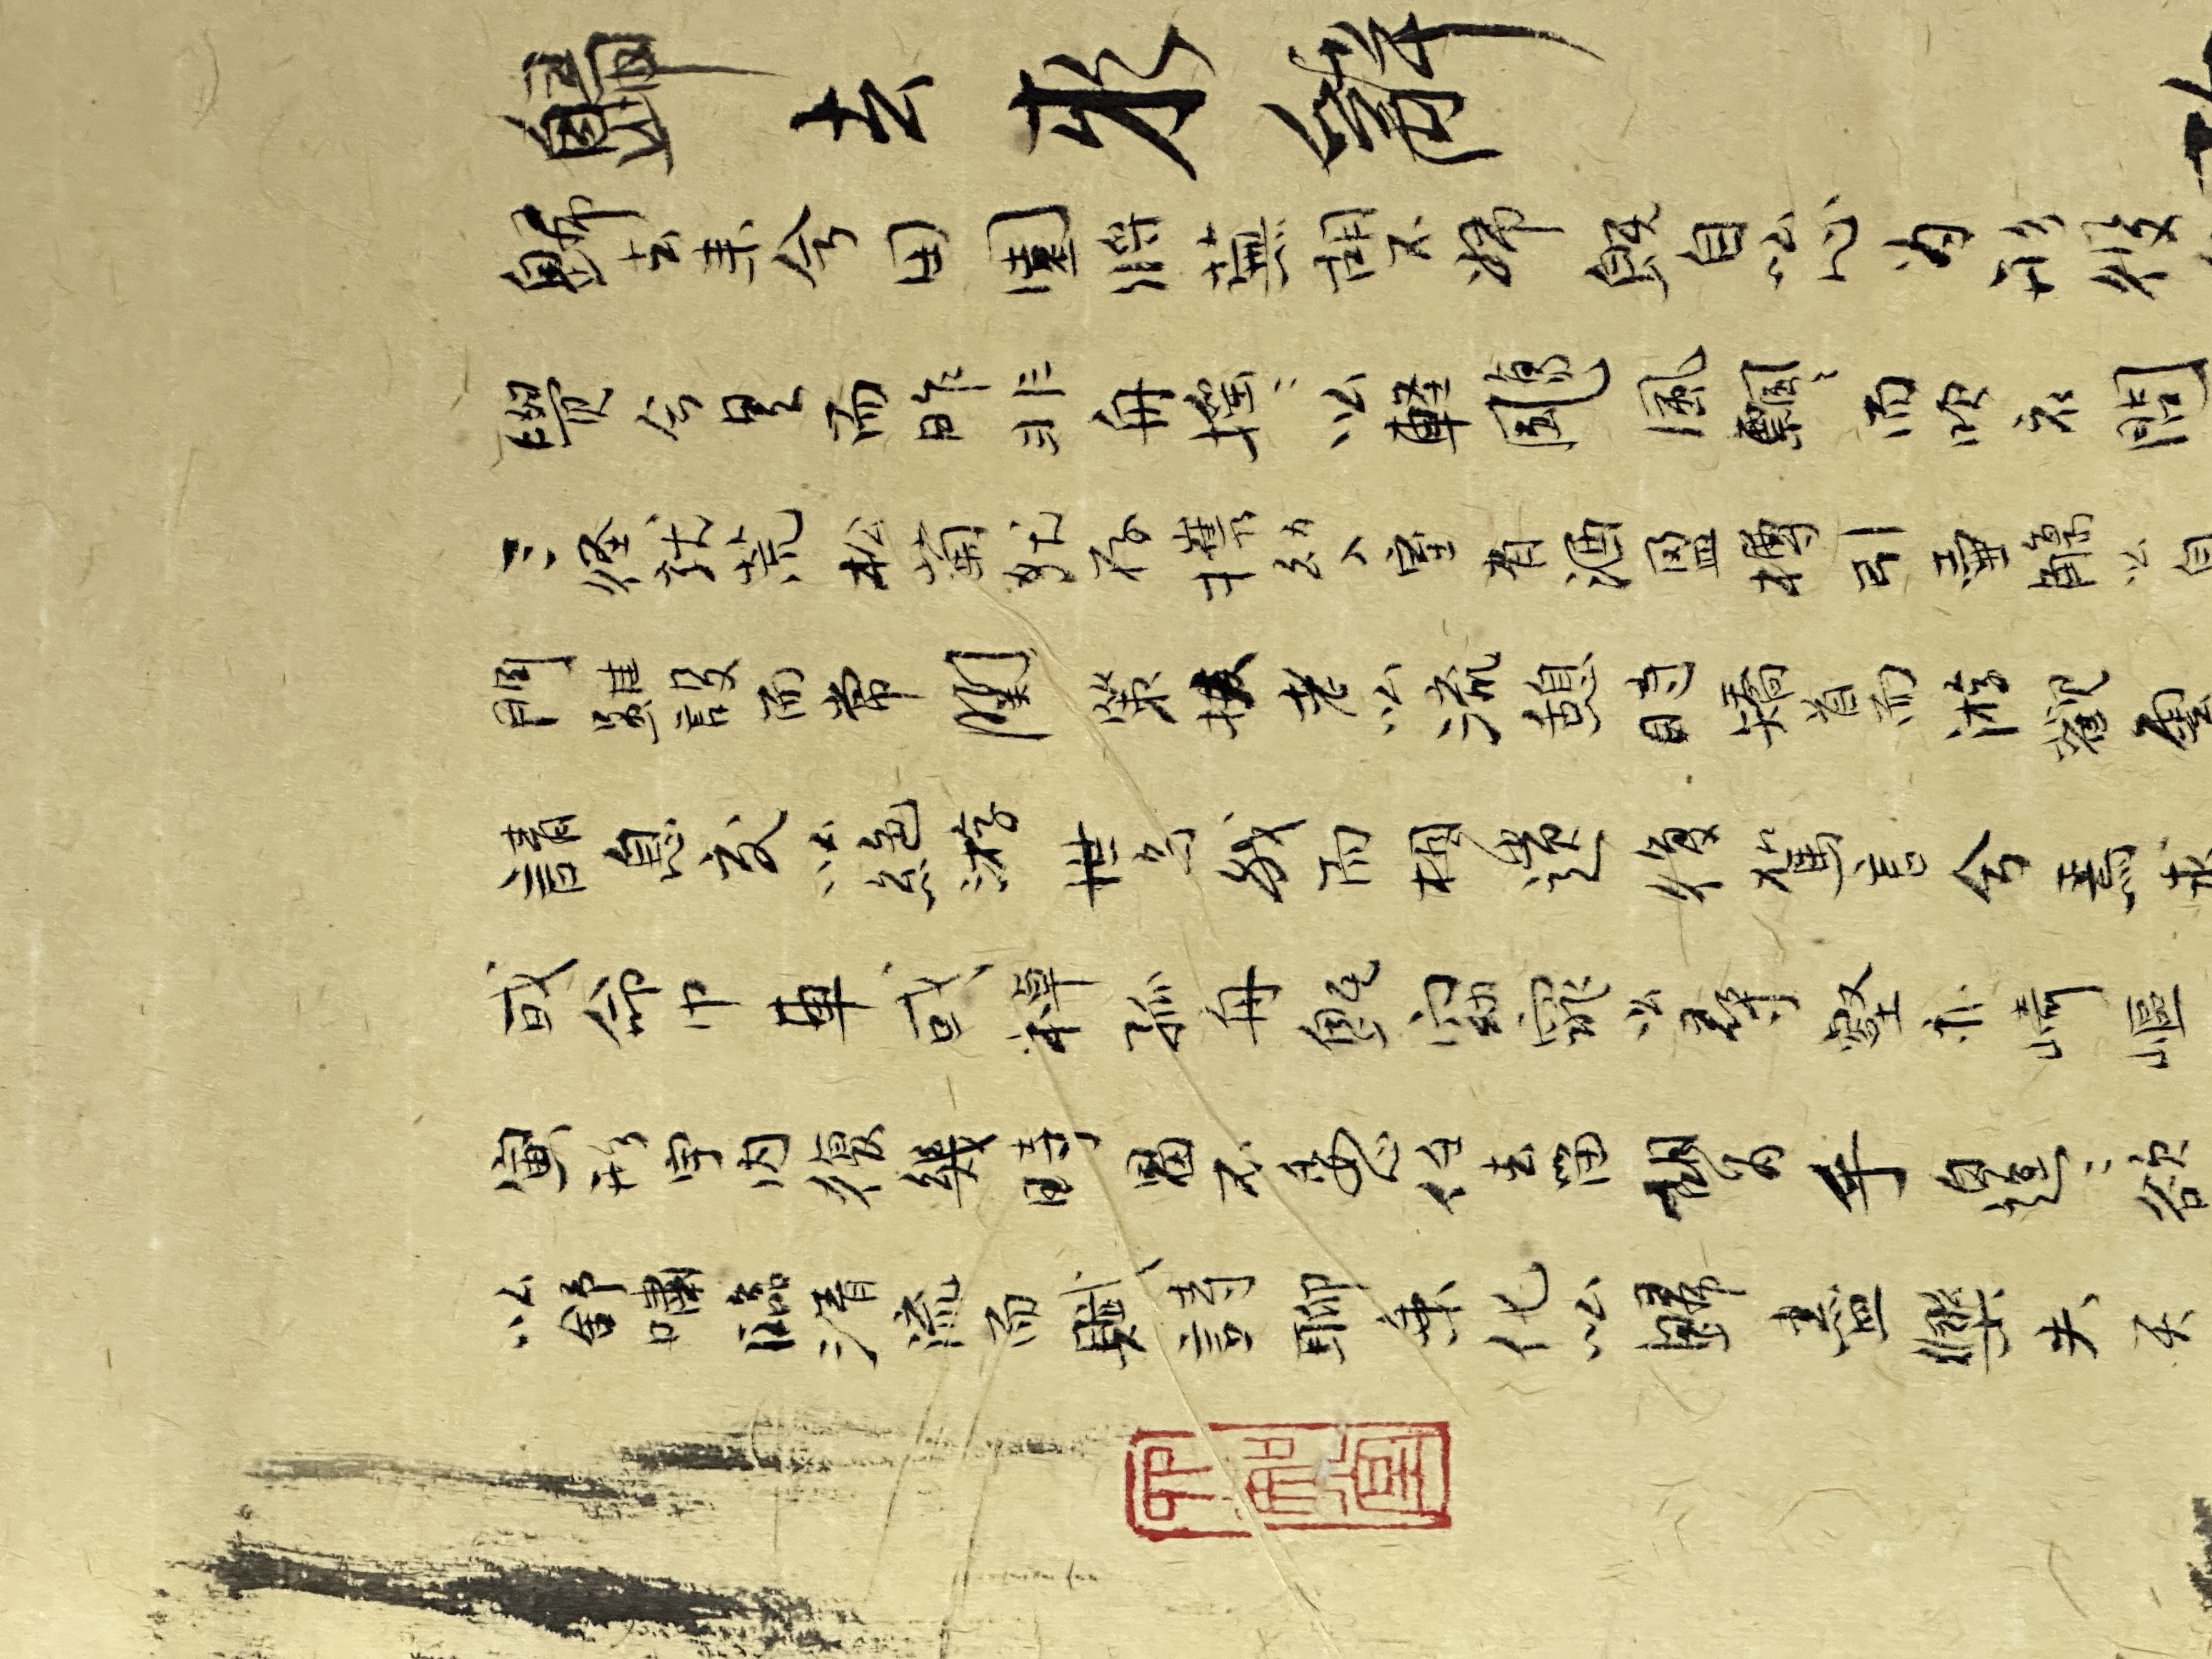 歸去來辭
歸去來兮田園將蕪胡不歸既自以心為形役
覺今是而昨非舟搖〻以輕颺風飄〻而吹衣問
三徑就荒松菊猶存攜幼入室有酒盈樽引壺觴以自
門雖設而常關策扶老以流憩時矯首而游觀雲
請息交以絕游世與我而相遺復駕言兮焉求
或命巾車或棹孤舟既窈窕以尋壑亦崎嶇
寓形宇內復幾時曷不委心任去留胡為乎遑〻欲
以舒嘯臨清流而賦詩聊乘化以歸盡樂夫天